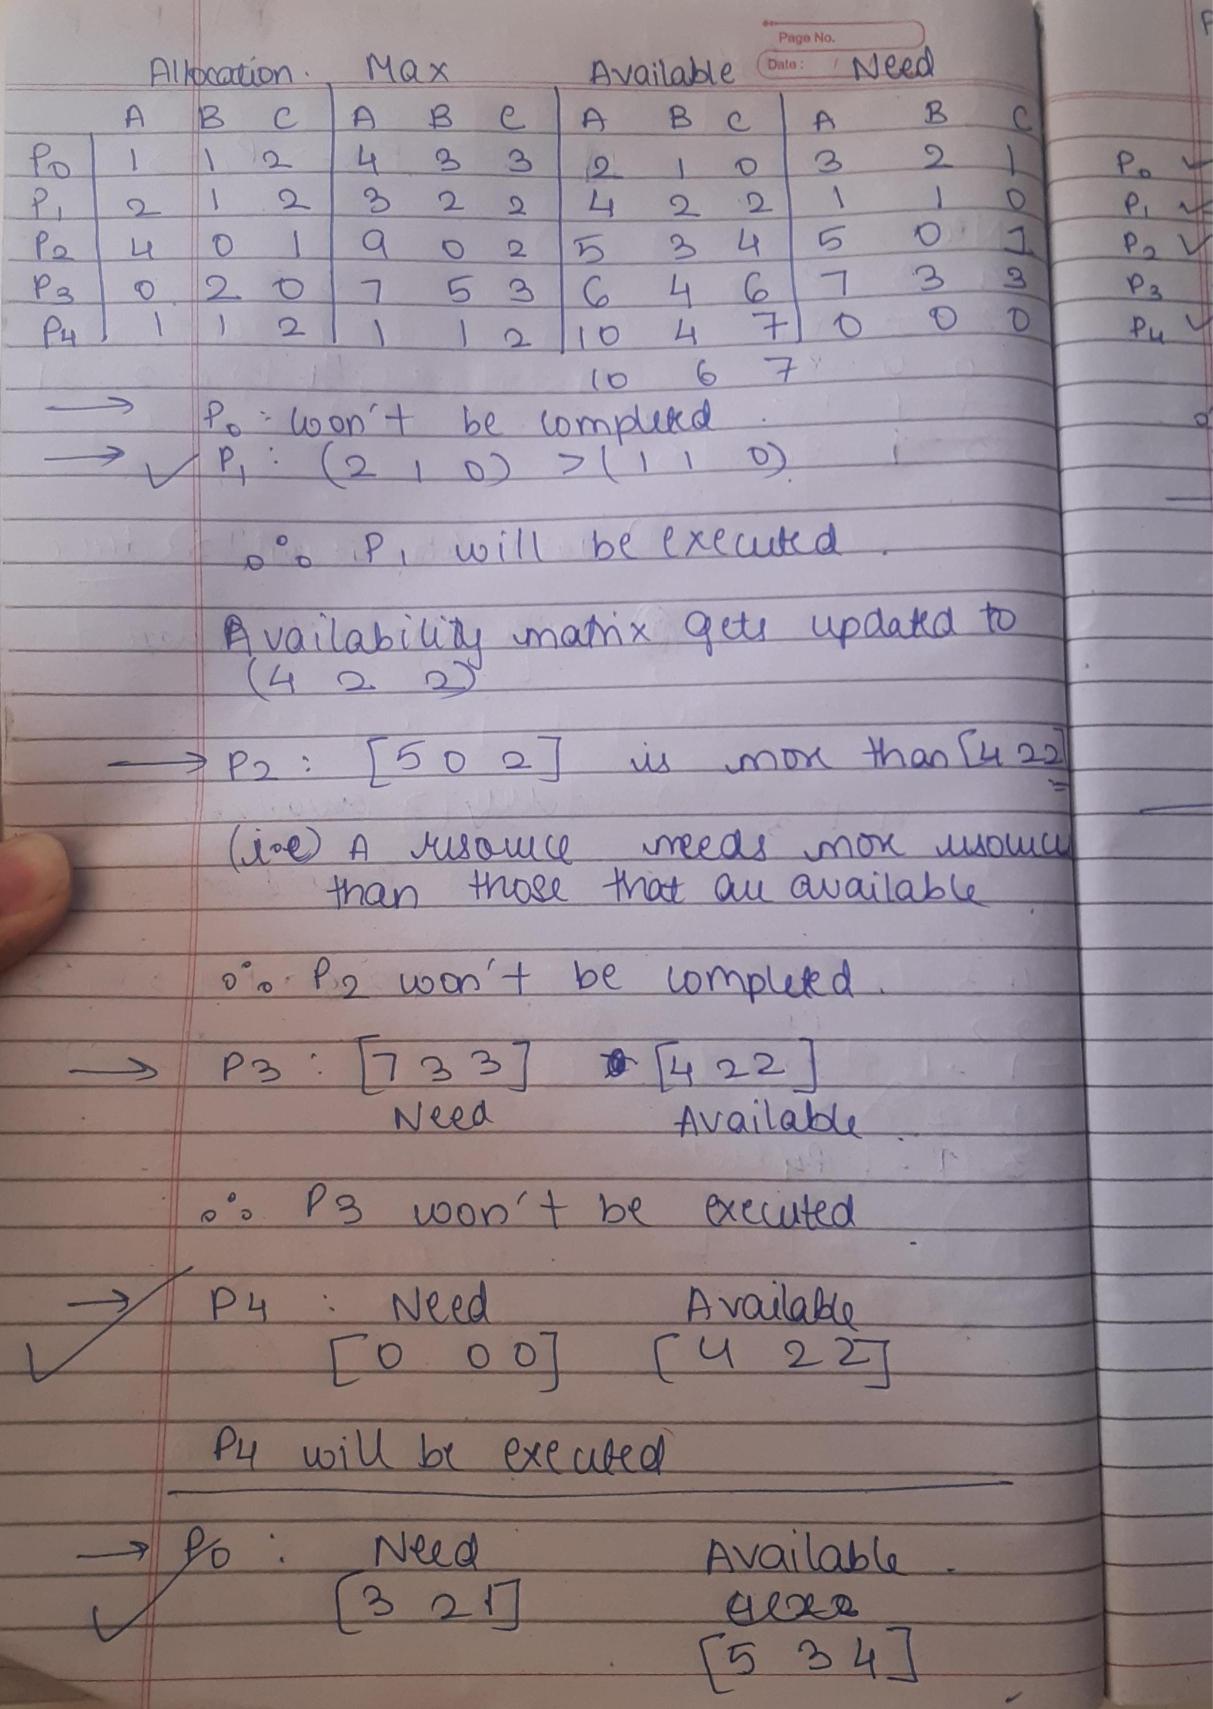 Page No.
Date: /
Allocation. Max Available Need
A B C A B C A B C A B C
P0 1 1 2 4 3 3 2 1 0 3 2 1 P0 ✓
P1 2 1 2 3 2 2 4 2 2 1 1 0 P1 ✓
P2 4 0 1 9 0 2 5 3 4 5 0 1 P2 ✓
P3 0 2 0 7 5 3 6 4 6 7 3 3 P3
P4 1 1 2 1 1 2 10 4 7 0 0 0 P4 ✓
10 6 7
→ P0 : won't be completed.
→ ✓ P1 : (2 1 0) > (1 1 0)
∴ P1 will be executed.
Availability matrix gets updated to
(4 2 2)
→ P2 : [5 0 2] is more than [4 2 2]
(i.e) A resource needs more resource
than those that are available
∴ P2 won't be completed.
→ P3 : [7 3 3] [4 2 2]
Need Available
∴ P3 won't be executed
→ P4 : Need Available
✓ [0 0 0] [4 2 2]
P4 will be executed
→ P0 : Need Available.
✓ [3 2 1]
[5 3 4]